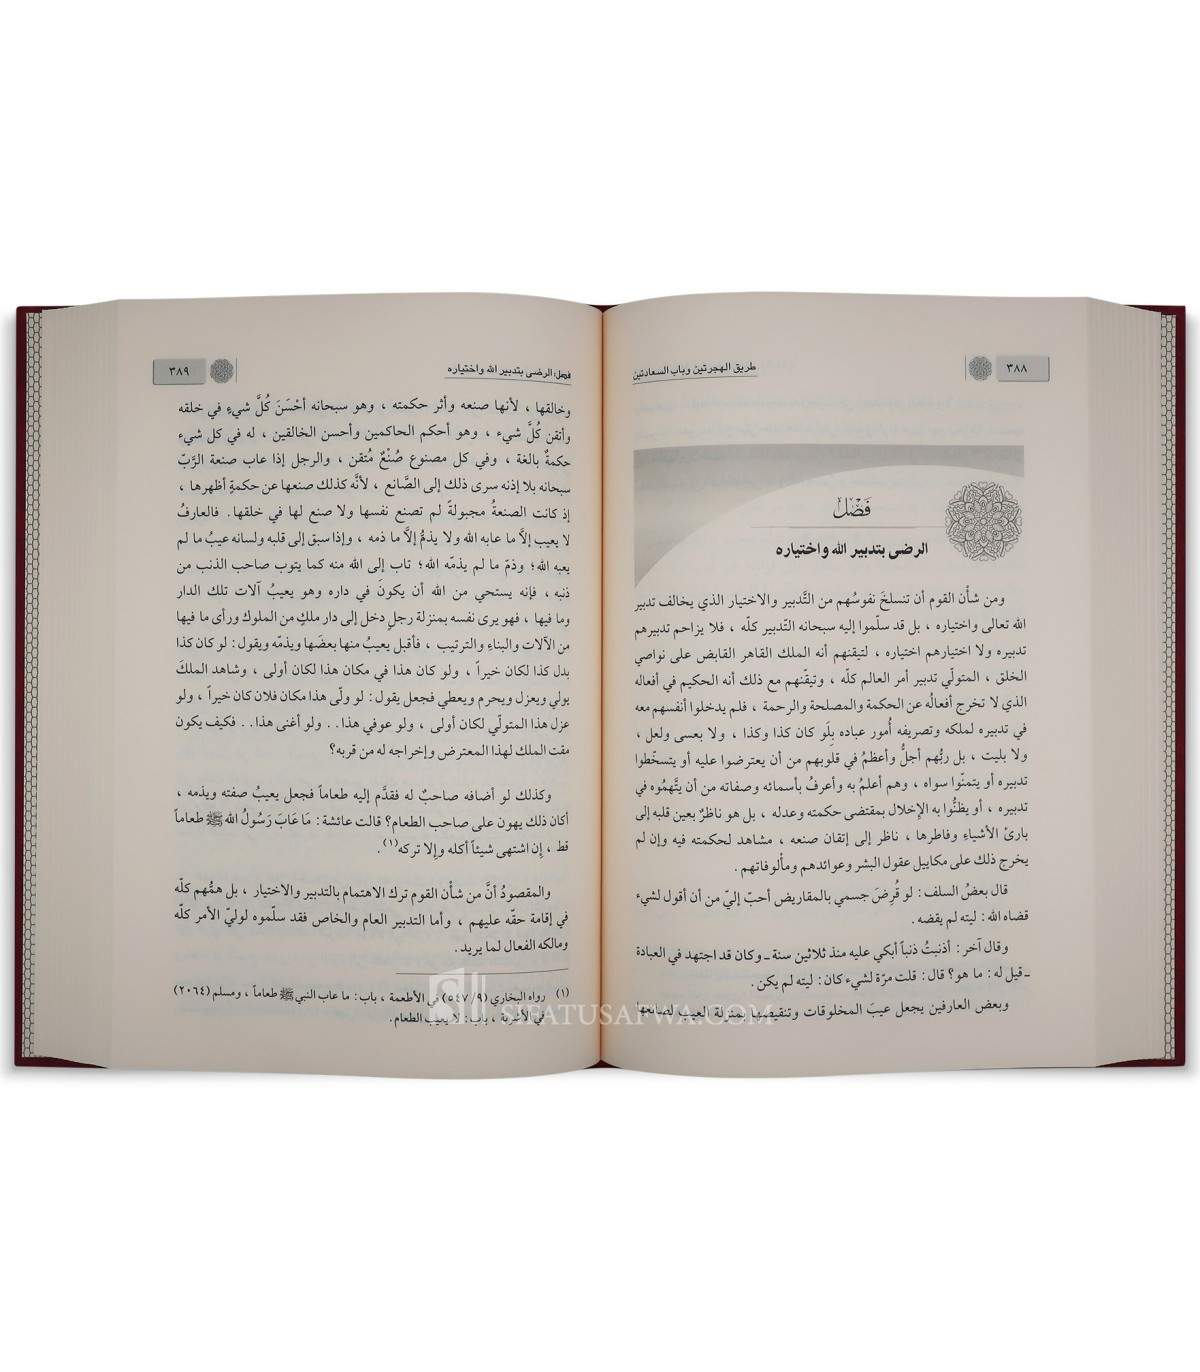 ٣٨٨
طريق الهجرتين وباب السعادتين
فَصْل
الرضى بتدبير الله واختياره
ومن شأن القوم أن تنسلخَ نفوسُهم من التَّدبير والاختيار الذي يخالف تدبير
الله تعالى واختياره ، بل قد سلّموا إليه سبحانه التّدبير كلّه ، فلا يزاحم تدبيرهم
تدبيره ولا اختيارهم اختياره ، لتيقنهم أنه الملك القاهر القابض على نواصي
الخلق ، المتولّي تدبير أمر العالم كلّه ، وتيقّنهم مع ذلك أنه الحكيم في أفعاله
الذي لا تخرج أفعالُه عن الحكمة والمصلحة والرحمة ، فلم يدخلوا أنفسهم معه
في تدبيره لملكه وتصريفه أُمور عباده بِلَو كان كذا وكذا ، ولا بعسى ولعل ،
ولا بليت ، بل ربُّهم أجلُّ وأعظمُ في قلوبهم من أن يعترضوا عليه أو يتسخّطوا
تدبيره أو يتمنّوا سواه ، وهم أعلمُ به وأعرفُ بأسمائه وصفاته من أن يتَّهموُه في
تدبيره ، أو يظنُّوا به الإخلال بمقتضى حكمته وعدله ، بل هو ناظرٌ بعين قلبه إلى
بارئ الأشياءِ وفاطرها ، ناظر إلى إتقان صنعه ، مشاهد لحكمته فيه وإن لم
يخرج ذلك على مكاييل عقول البشر وعوائدهم ومألوفاتهم .
قال بعضُ السلف : لو قُرِضَ جسمي بالمقاريض أحبّ إليّ من أن أقول لشيء
قضاه الله : ليته لم يقضه .
وقال آخر : أذنبتُ ذنباً أبكي عليه منذ ثلاثين سنة ـ وكان قد اجتهد في العبادة
ـ قيل له : ما هو؟ قال : قلت مرّة لشيء كان : ليته لم يكن .
وبعض العارفين يجعل عيبَ المخلوقات وتنقيصَها بمنزلة العيب لصانعها
فصل: الرضى بتدبير الله واختياره
٣٨٩
وخالقها ، لأنها صنعه وأثر حكمته ، وهو سبحانه أحْسَنَ كُلَّ شيءٍ في خلقه
وأتقن كُلَّ شيء ، وهو أحكم الحاكمين وأحسن الخالقين ، له في كل شيء
حكمةٌ بالغة ، وفي كل مصنوع صُنْعٌ مُتقن ، والرجل إذا عاب صنعة الرَّبّ
سبحانه بلا إذنه سرى ذلك إلى الصَّانع ، لأنَّه كذلك صنعها عن حكمةٍ أظهرها ،
إذ كانت الصنعةُ مجبولةً لم تصنع نفسها ولا صنع لها في خلقها. فالعارفُ
لا يعيب إلاَّ ما عابه الله ولا يذمُّ إلاَّ ما ذمه ، وإذا سبق إلى قلبه ولسانه عيبُ ما لم
يعبه الله؛ وذمّ ما لم يذمّه الله؛ تاب إلى الله منه كما يتوب صاحب الذنب من
ذنبه ، فإنه يستحي من الله أن يكونَ في داره وهو يعيبُ آلات تلك الدار
وما فيها ، فهو يرى نفسه بمنزلة رجلٍ دخل إلى دار ملكٍ من الملوك ورأى ما فيها
من الآلات والبناءِ والترتيب ، فأقبل يعيبُ منها بعضَها ويذمّه ويقول : لو كان كذا
بدل كذا لكان خيراً ، ولو كان هذا في مكان هذا لكان أولى ، وشاهد الملكَ
يولي ويعزل ويحرم ويعطي فجعل يقول : لو ولّى هذا مكان فلان كان خيراً ، ولو
عزل هذا المتولّي لكان أولى ، ولو عوفي هذا . . ولو أغنى هذا . . فكيف يكون
مقت الملك لهذا المعترض وإخراجه له من قربه؟
وكذلك لو أضافه صاحبٌ له فقدَّم إليه طعاماً فجعل يعيبُ صفته ويذمه ،
أكان ذلك يهون على صاحب الطعام؟ قالت عائشة : مَا عَابَ رَسُولُ الله ﷺ طعاماً
قط ، إن اشتهى شيئاً أكله وإلا تركه(١).
والمقصودُ أنَّ من شأن القوم ترك الاهتمام بالتدبير والاختيار ، بل همُّهم كلّه
في إقامة حقّه عليهم ، وأما التدبير العام والخاص فقد سلّموه لوليّ الأمر كلّه
ومالكه الفعال لما يريد .
(١) رواه البخاري (٥٤٧/٩) في الأطعمة ، باب : ما عاب النبي ﷺ طعاماً ، ومسلم (٢٠٦٤)
في الأشربة ، باب : لا يعيب الطعام .
SIFATUSAFWA.COM